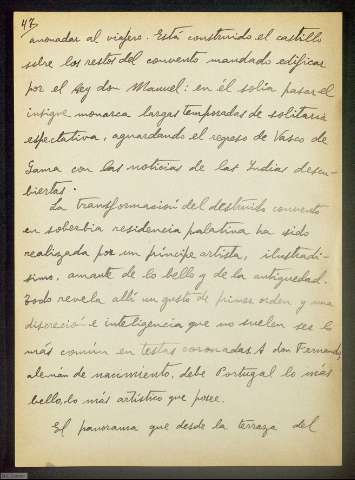 47
anonadar al viajero. Está construido el castillo
sobre los restos del convento mandado edificar
por el Rey don Manuel: en él solía pasar el
insigne monarca largas temporadas de solitaria
espectativa, aguardando el regreso de Vasco de
Gama con las noticias de las Indias descu-
biertas.
La transformación del destruido convento
en soberbia residencia palatina ha sido
realizada por un príncipe artista, ilustradí-
simo, amante de lo bello y de la antigüedad.
Todo revela allí un gusto de primer orden y una
discreción e inteligencia que no suelen ser lo
más común en testas coronadas. A don Fernando,
alemán de nacimiento, debe Portugal lo más
bello, lo más artístico que posee.
El panorama que desde la terraza del